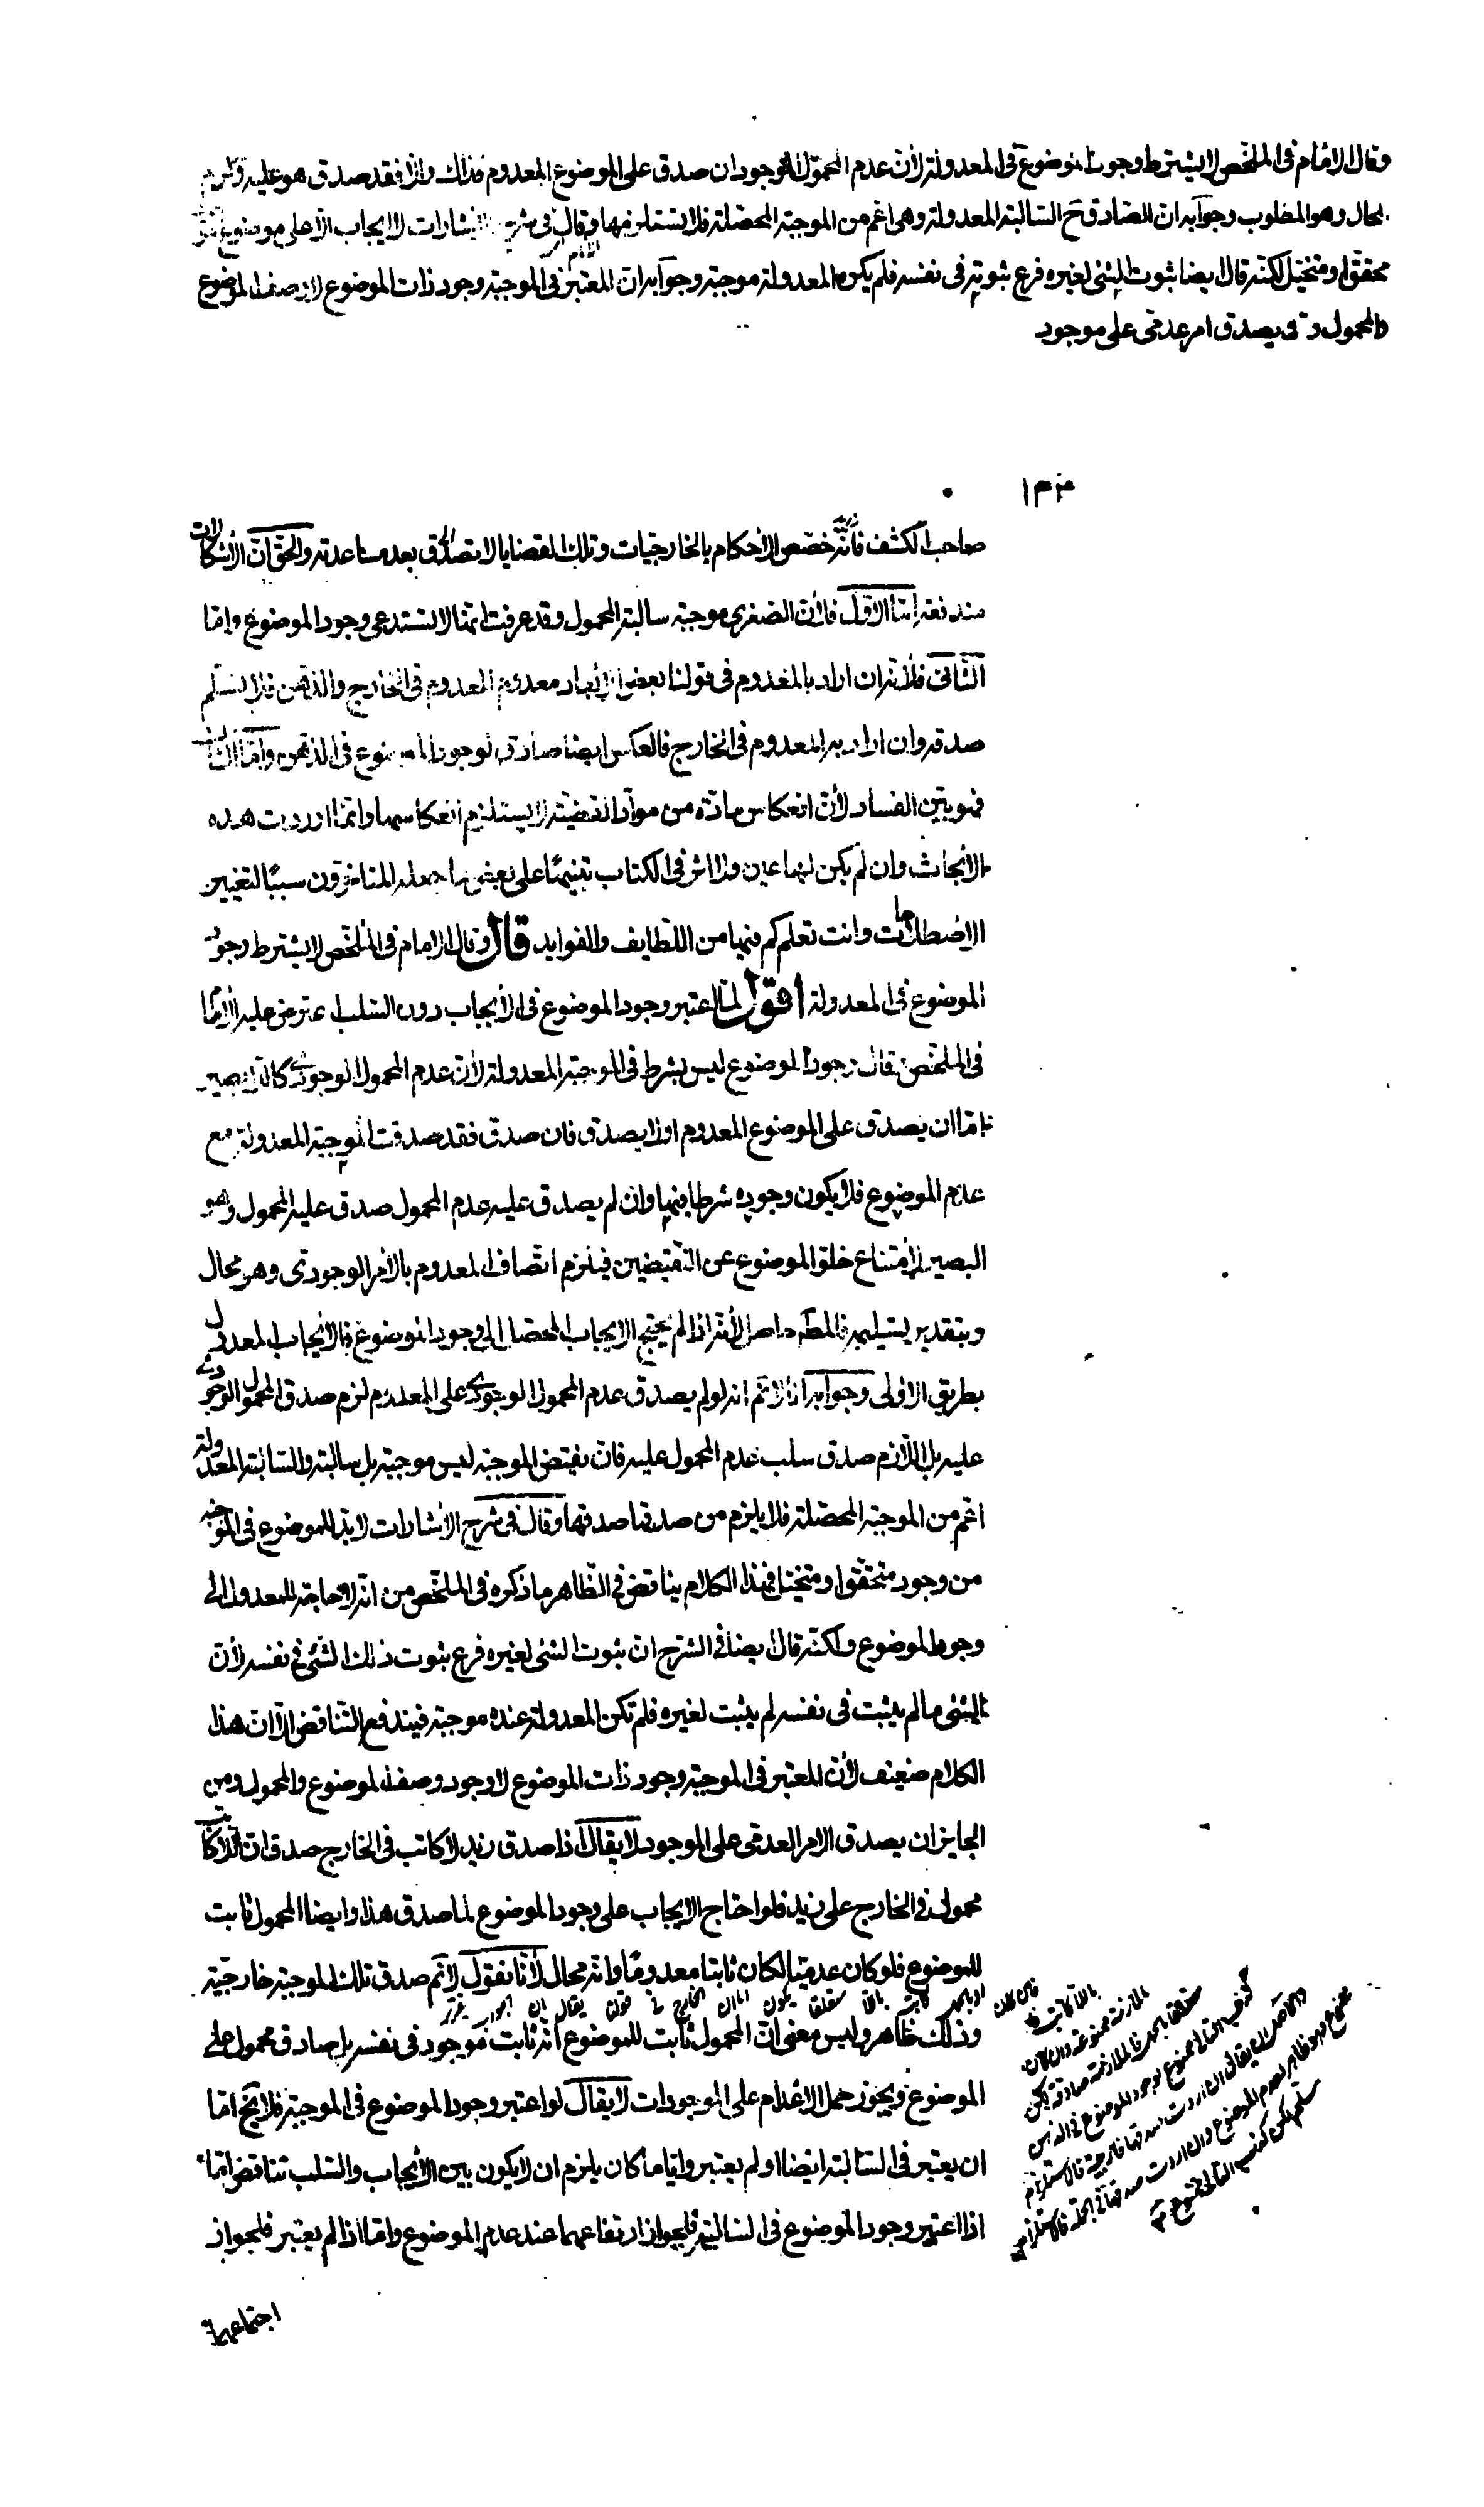 وقال الامام فى الملخص لا يشترط وجود الموضوع فى المعدولة لأن عدم المحمول الوجودى ان صدق على الموضوع المعدوم فذاك والا فقد صدق هو عليه
المحال وهو المطلوب وجوابه ان الصادق ح السالبة المعدولة وهى اعم من الموجبة المحصلة فلا تستلزمها وقال الامام فى شرح الاشارات لا ايجاب الا على موضوع
محقق او متخيل لكنه قال ايضا ثبوت الشئ لغيره فرع ثبوته فى نفسه فلم يكن المعدولة موجبة وجوابه ان المعتبر فى الموجبة وجود ذات الموضوع لا وصفا الموضوع
والمحمول و قد يصدق امر عدمى على موجود
١٣٤
صاحب الكشف فانه خصص الأحكام بالخارجيات وتلك القضايا لا تصدق بعد مساعدته والحق ان الأشكالات
مندفعة اما الاول فلأن الصغرى موجبة سالبة المحمول وقد عرفت انها لا تستدعى وجود الموضوع واما
الثانى فلأنه ان اراد بالمعدوم فى قولنا بعض الأبعاد معدوم المعدوم فى الخارج والذهن فلا نسلم
صدقه وان اراد به المعدوم فى الخارج فالعكس ايضا صادق لوجود الموضوع فى الذهن واما الثالث
فهو بين الفساد لأن انعكاس مادة من مواد القضية لا يستلزم انعكاسها وانما اوردت هذه
الأبحاث وان لم يكن لها عين ولا اثر فى الكتاب تنبيها على بعض ما جعله المتأخرون سببا لتغيير
الاصطلاحات وانت تعلم كم فيها من اللطايف والفوايد قال وقال الامام فى الملخص لا يشترط وجود
الموضوع فى المعدولة اقول لما اعتبر وجود الموضوع فى الأيجاب دون السلب اعترض عليه الامام
فى الملخص فقال وجود الموضوع ليس بشرط فى الموجبة المعدولة لأن عدم المحمول الوجودى كالبصير
اما ان يصدق على الموضوع المعدوم اولا يصدق فان صدق فقد صدقت الموجبة المعدولة مع
عدم الموضوع فلا يكون وجوده شرطا فيها وان لم يصدق عليه عدم المحمول صدق عليه المحمول وهو
البصير لأمتناع خلو الموضوع عن النقيضين فيلزم اتصاف المعدوم بالأمر الوجودى وهو محال
وبتقدير تسليمه فالمط حاصل لأنه اذا لم يحتج الايجاب المحصل الى وجود الموضوع فالأيجاب المعدول
بطريق الاولى وجوابه انا لا نم انه لو لم يصدق عدم المحمول الوجودى على المعدوم لزم صدق المحمول الوجودى
عليه بل اللازم صدق سلب عدم المحمول عليه فان نقيض الموجبة ليس موجبة بل سالبة والسالبة المعدولة
اعم من الموجبة المحصلة فلا يلزم من صدقها صدقها وقال فى شرح الأشارات لا بد للموضوع فى الموجبة
من وجود متحقق او متخيل فهذا الكلام يناقض فى الظاهر ما ذكره فى الملخص من انه لا حاجة للمعدول الى
وجود الموضوع ولكنه قال ايضا فى الشرح ان ثبوت الشئ لغيره فرع ثبوت ذلك الشئ فى نفسه لأن
الشئ ما لم يثبت فى نفسه لم يثبت لغيره فلم تكن المعدولة عنده موجبة فيندفع التناقض الا ان هذا
الكلام ضعيف لأن المعتبر فى الموجبة وجود ذات الموضوع لا وجود وصف الموضوع والمحمول ومن
الجايز ان يصدق الامر العدمى على الموجود لا يقال اذا صدق زيد لا كاتب فى الخارج صدق ان اللاكاتب
محمول فى الخارج على زيد فلو احتاج الايجاب على وجود الموضوع لما صدق هذا وايضا المحمول ثابت
للموضوع فلو كان عدميا لكان ثابتا معدوما وانه محال لأنا نقول لا نم صدق تلك الموجبة خارجية
وذلك ظاهر وليس معنى ان المحمول ثابت للموضوع انه ثابت موجود فى نفسه بل صادق محمول على
الموضوع ويجوز حمل الاعدام على الموجودات لا يقال لو اعتبر وجود الموضوع فى الموجبة فلا يخ اما
ان يعتبر فى السالبة ايضا او لم يعتبر واياما كان يلزم ان لا يكون بين الأيجاب والسلب تناقض اما
اذا اعتبر وجود الموضوع فى السالبة فلجواز ارتفاعهما عند عدم الموضوع واما اذا لم يعتبر فلجواز
اجتماعهما